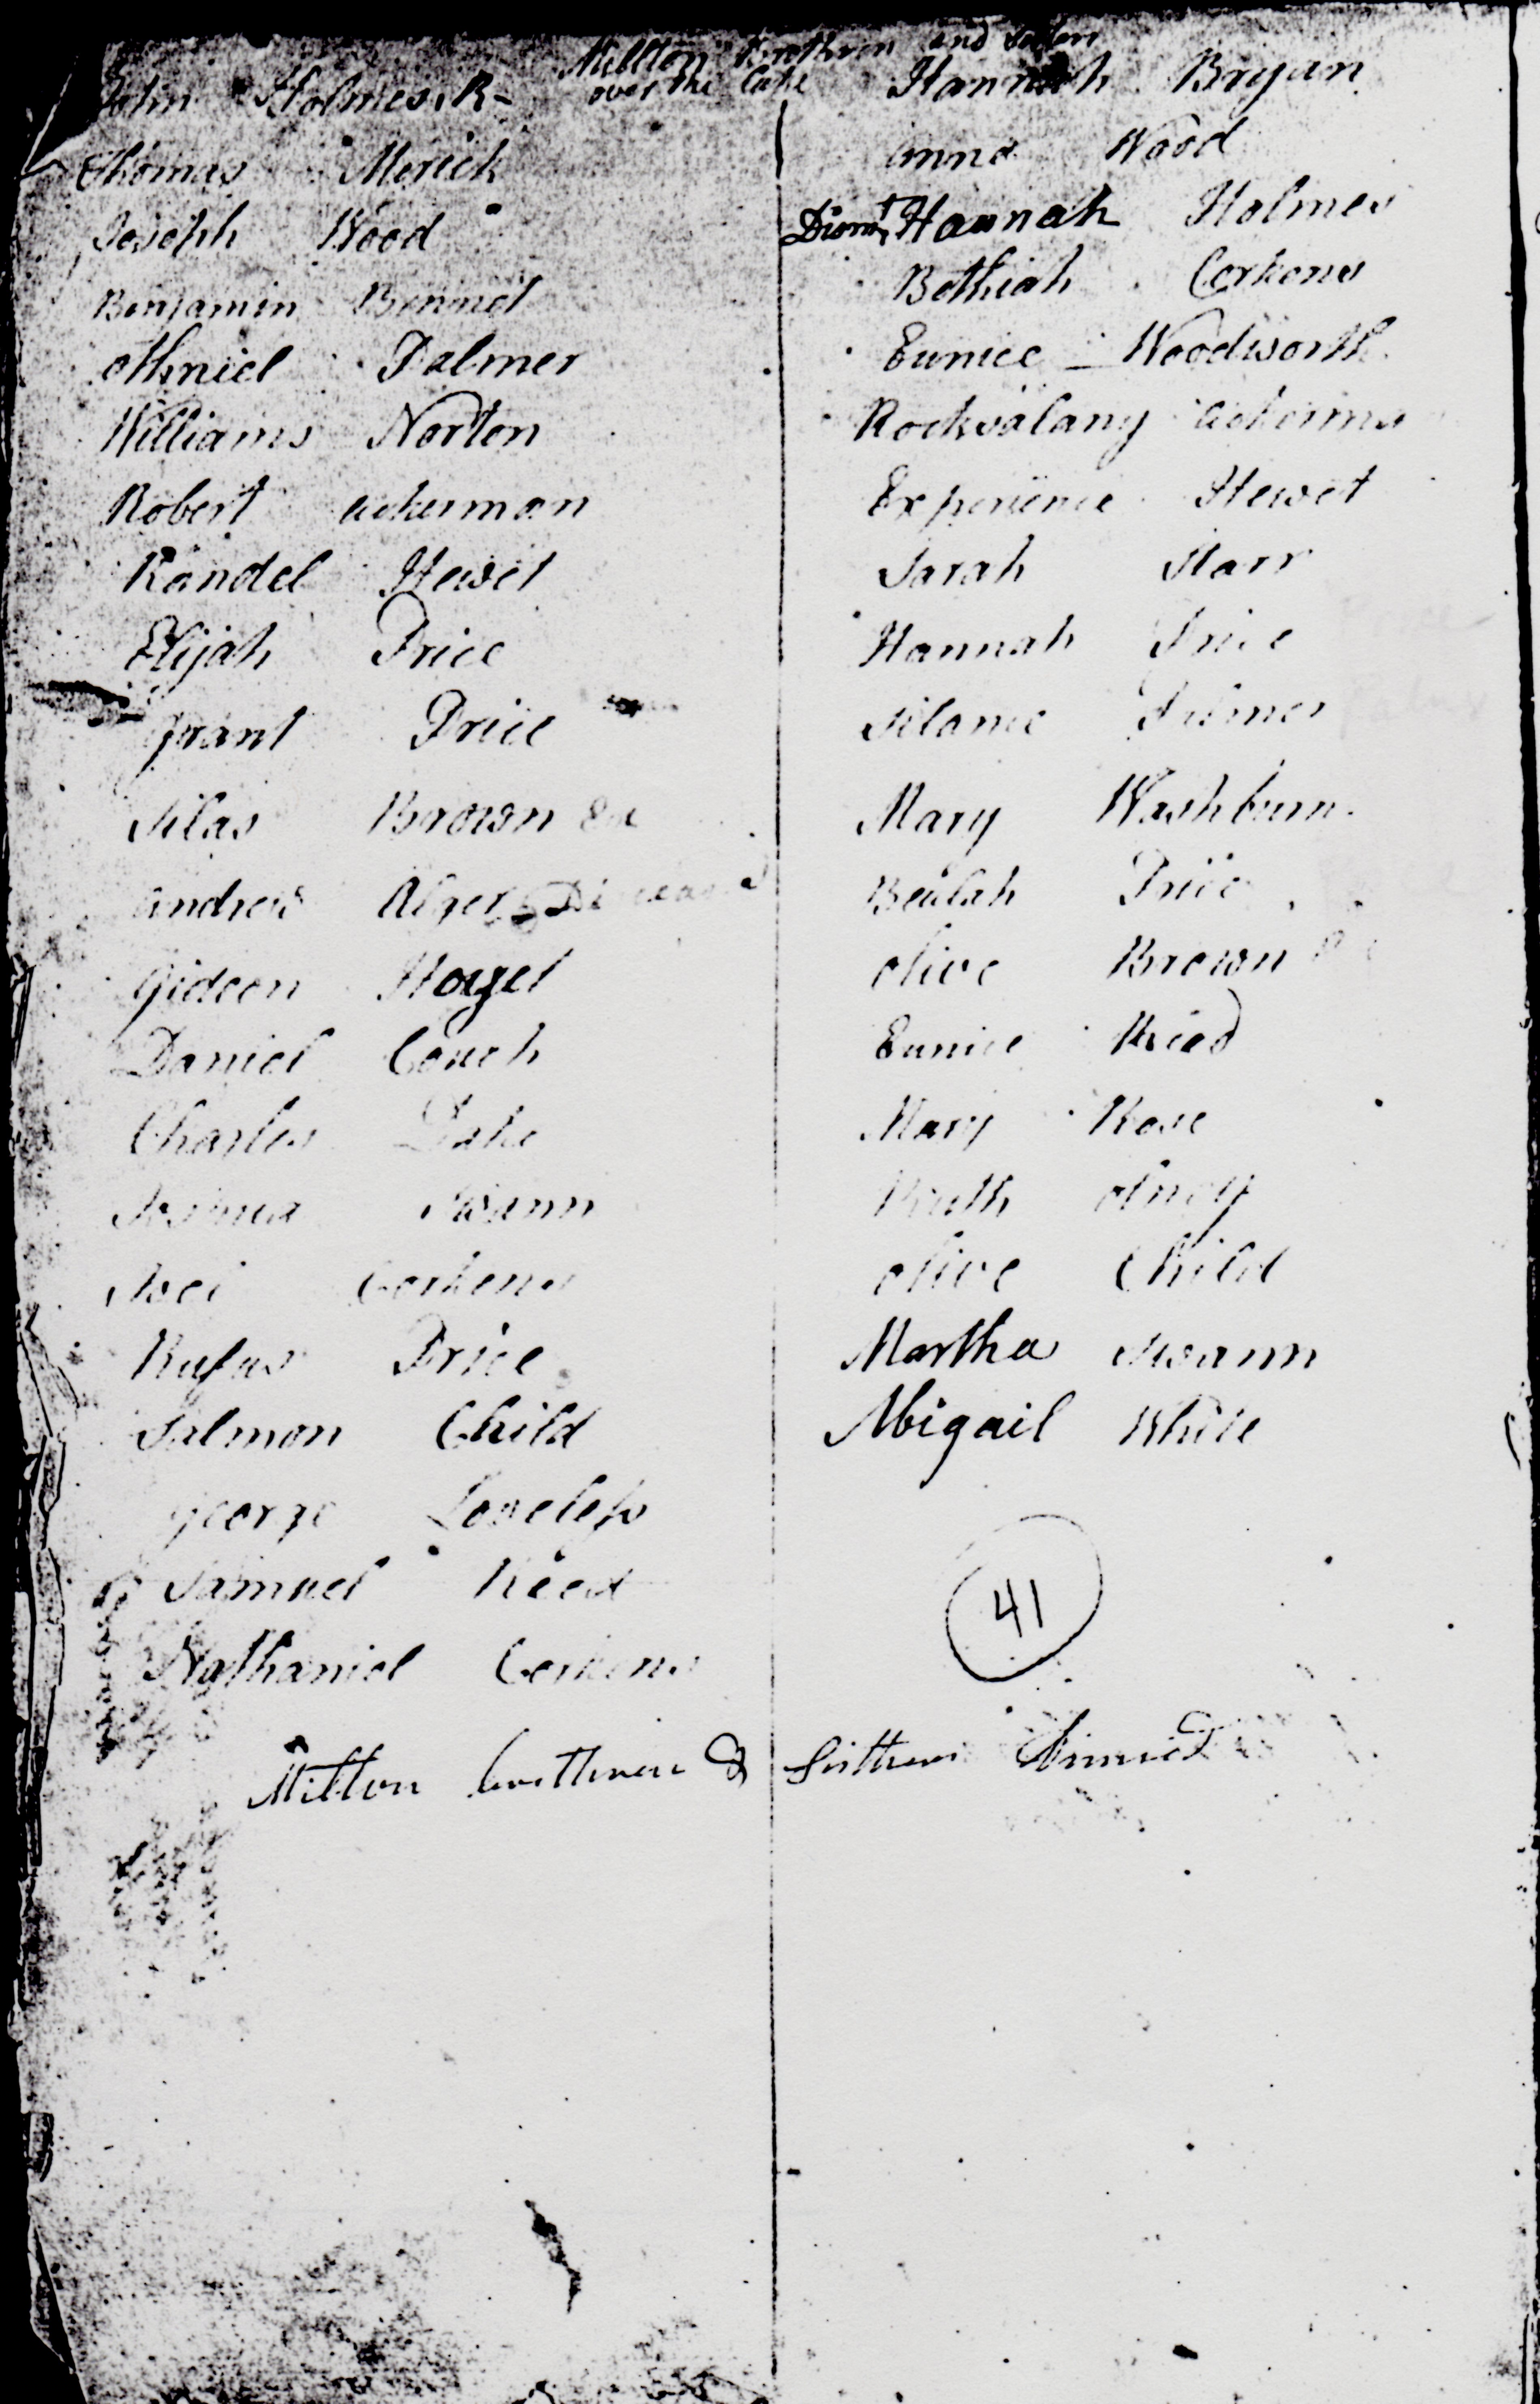 Millton Brethren and Sisters
over the Lake
John Holmes, R-
Thomas Merick
Joseph Wood
Benjamin Bennet
othniel Palmer
Williams Norton
Robert ackerman
Randel Hewet
Elijah Price
grant Price
Silas Brown
andrew Alger
gideon
Daniel Couch
Charles
Joshua Swann
Corkens
Rufus Price
Salmon Child
george Loveless
Samuel Reed
Nathaniel Corkens
Hannah Bryan
anna Wood
Hannah Holmes
Bethiah Corkens
Eunice Woodworth
Rocksalany
Experience Hewet
Sarah Starr
Hannah Price
Palmer
Mary Washburn
Beulah Price
olive Brown
Eunice Reed
Mary Rose
Ruth olney
olive Child
Martha Swann
Abigail White
41
Milton &